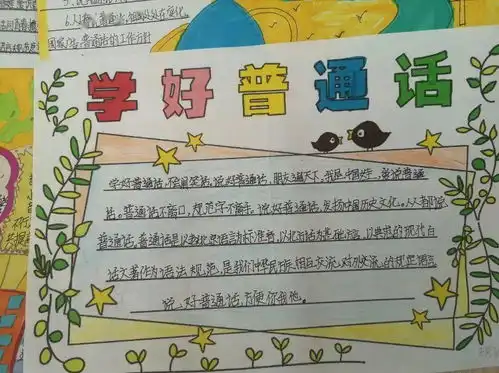 6.人人
普通话的工作方针
学好普通话
学好普通话,不会闹笑话,说好普通话,朋友遍天下,我是中国娃,爱说普通
话。普通话不离口,规范字不离手,说好普通话,发扬中国历史文化。人人都说
普通话,普通话是以北京语音为标准音,以北方话为基础方言,以典范的现代白
话文著作为语法规范,是我们中华民族,相互交流,对外交流,的规范语言
说好普通话,方便你我他。